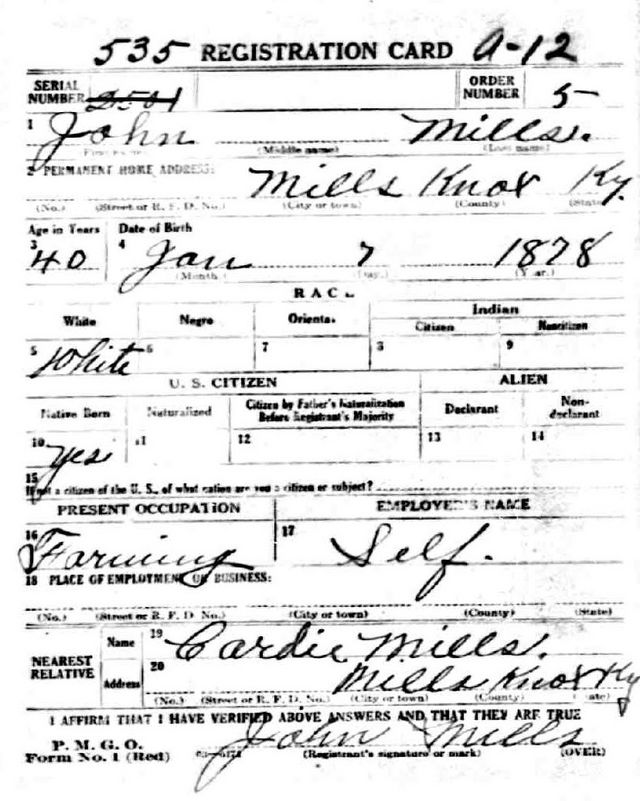 535 REGISTRATION CARD A-12
SERIAL NUMBER 2501 ORDER NUMBER 5
1 John Mills.
(Middle name) (Last name)
2 PERMANENT HOME ADDRESS: Mills Knox Ky.
(No.) (Street or R. F. D. No.) (City or town) (County) (State)
Age in Years Date of Birth
3 40 4 Jan 7 1878
(Month) (Day) (Year)
RACE
White Negro Oriental Indian
Citizen Noncitizen
5 White 6 7 8 9
U. S. CITIZEN ALIEN
Native Born Naturalized Citizen by Father's Naturalization Before Registrant's Majority Declarant Non-declarant
10 Yes 11 12 13 14
15
If not a citizen of the U. S., of what nation are you a citizen or subject?
PRESENT OCCUPATION EMPLOYER'S NAME
16 Farming 17 Self.
18 PLACE OF EMPLOYMENT OR BUSINESS:
(No.) (Street or R. F. D. No.) (City or town) (County) (State)
NEAREST RELATIVE Name 19 Cardie Mills.
Address 20 Mills Knox Ky
(No.) (Street or R. F. D. No.) (City or town) (County) (State)
I AFFIRM THAT I HAVE VERIFIED ABOVE ANSWERS AND THAT THEY ARE TRUE
P. M. G. O. John Mills
Form No. 1 (Red) (Registrant's signature or mark) (OVER)